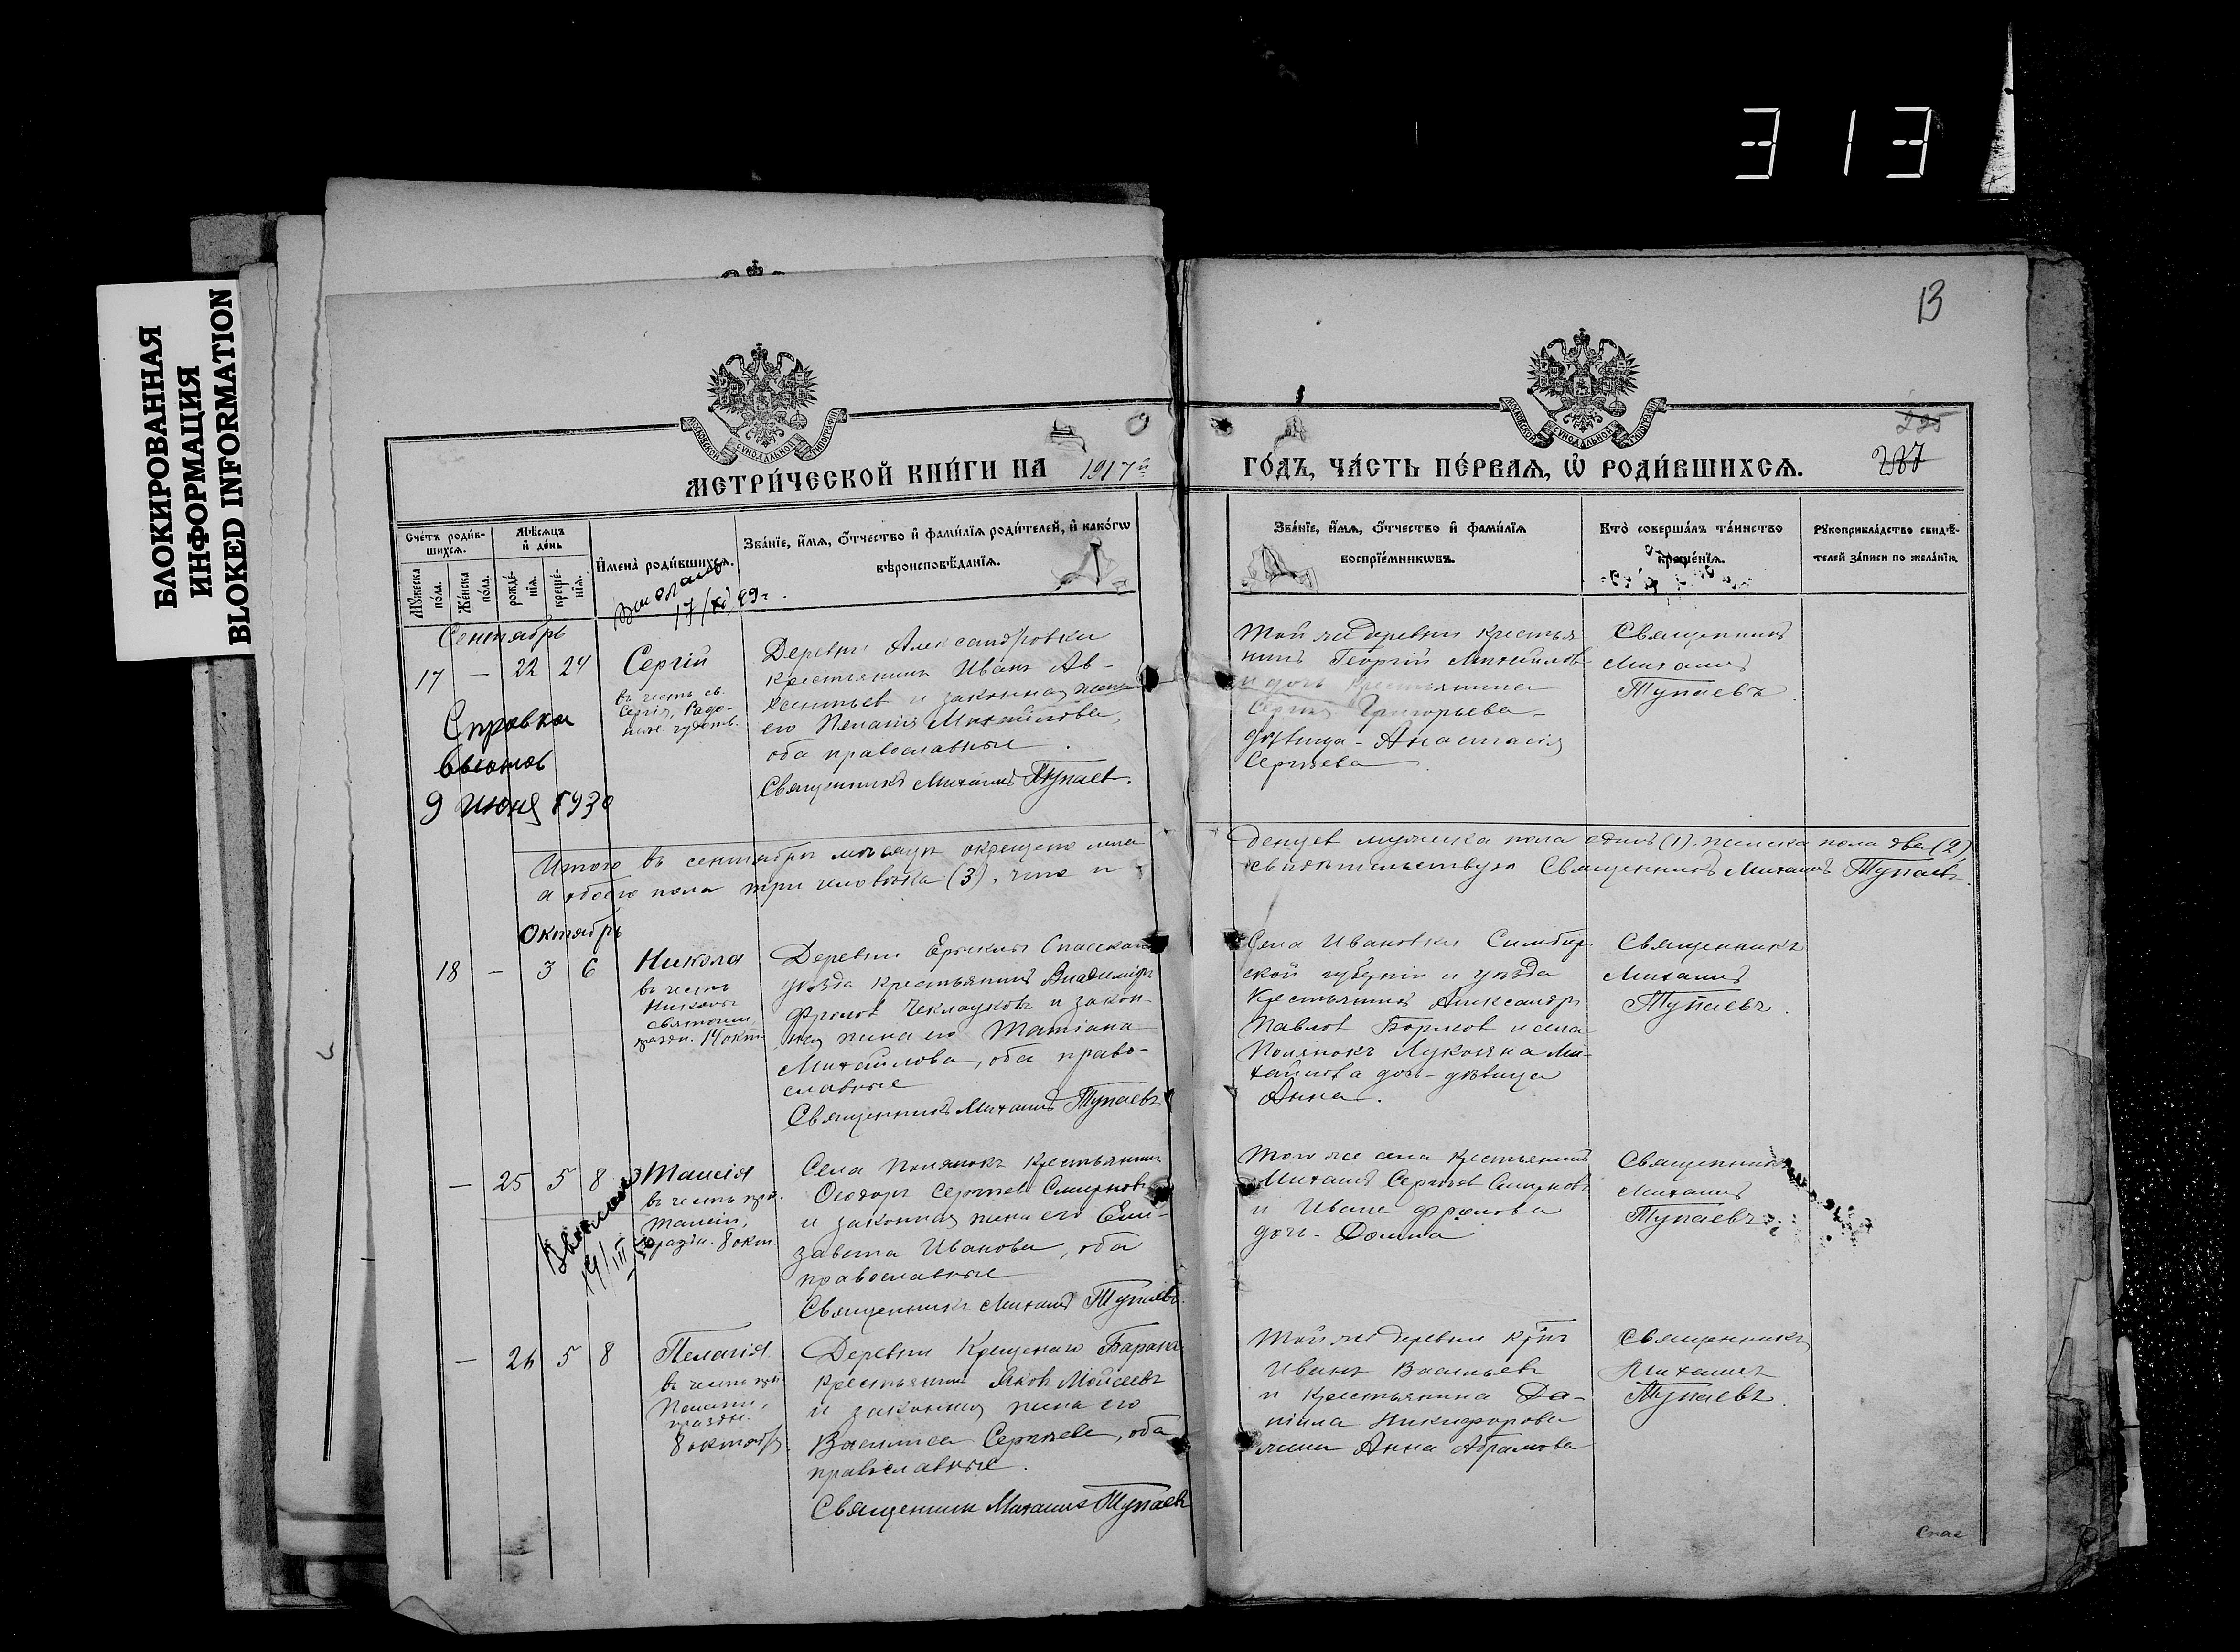 313
БЛОКИРОВАННАЯ
ИНФОРМАЦИЯ
BLOKED INFORMATION
13
МОСКОВСКОЙ СѴНОДАЛЬНОЙ ТИПОГРАФІИ
МОСКОВСКОЙ СѴНОДАЛЬНОЙ ТИПОГРАФІИ
225
227
МЕТРИ́ЧЕСКОЙ КНИ́ГИ НА 1917й
ГО́ДЪ, ЧА́СТЬ ПЕ́РВАЯ, Ѡ҆ РОДИ́ВШИХСЯ.
Сче́тъ роди́в-
шихся.
Мѣ́сяцъ
и҆ де́нь
Мꙋ́жеска
по́ла.
Же́нска
по́ла.
рожде́-
нїѧ.
креще́-
нїѧ.
И҆мена̀ роди́вшихся.
Зва́нїе, и҆́мѧ, ѻ҆́тчество и҆ фами́лїѧ роди́телей, и҆ како́гѡ
вѣроисповѣ́данїѧ.
Зва́нїе, и҆́мѧ, ѻ҆́тчество и҆ фами́лїѧ
воспрїе́мниковъ.
Кто̀ соверша́лъ та́инство
креще́нїѧ.
Рꙋкоприкла́дство свидѣ́-
телей за́писи по жела́нїю.
17/XI 29г.
Сентябрь
17 — 22 24
Сергій
въ честь св.
Сергія, Радо-
неж. чудотв.
Деревни Александровки
крестьянинъ Иванъ Ав-
ксентьев и законная жена
его Пелагія Михайлова,
оба православные.
Священникъ Михаилъ Тупаев.
Той же деревни крестья
нинъ Георгій Михайлов
и дочь крестьянина
Сергія Григорьева -
дѣвица - Анастасія
Сергѣева.
Священникъ
Михаилъ
Тупаевъ.
Справка
выдана
9 июня 1930
Итого въ сентябрѣ мѣсяцѣ окрещено
а обоего пола три человѣка (3), что и
мужеска пола одинъ (1), женска пола два (2)
свидѣтельствую Священникъ Михаилъ Тупаевъ.
Октябрь
18 — 3 6
Никола
въ честь
Николы
святоши,
праздн. 14 окт.
Деревни Ерыклы Спасскаго
уѣзда крестьянинъ Владиміръ
Фролов Чеклауковъ и закон-
ная жена его Татіана
Михайлова, оба право-
славные
Священникъ Михаилъ Тупаевъ
Села Ивановки Симбир
ской губерніи и уѣзда
крестьянинъ Александръ
Павлов и села
Полянокъ Лукояна Ми-
хайлова дочь - дѣвица
Анна.
Священникъ
Михаилъ
Тупаевъ.
— 25 5 8
Таисія
въ честь прп.
Таисіи,
праздн. 8 окт.
14/III
Села Полянокъ крестьянинъ
Ѳеодоръ Сергѣев Смирновъ
и законная жена его Ели-
завета Иванова, оба
православные.
Священникъ Михаилъ Тупаевъ.
Того же села крестьянинъ
Михаилъ Сергѣев Смирновъ
и Ивана Фролова
дочь - Домна
Священникъ
Михаилъ
Тупаевъ.
— 26 5 8
Пелагія
въ честь прп.
Пелагіи,
праздн.
8 октября.
Деревни Крещенаго Барана
крестьянинъ Яковъ Мойсеевъ
и законная жена его
Василиса Сергѣева, оба
православные.
Священник Михаилъ Тупаевъ
Той же деревни кр-нъ
Иванъ Васильевъ
и крестьянина Да-
нiила Никифорова
жена Анна Абрамова
Священникъ
Михаилъ
Тупаевъ.
Спас